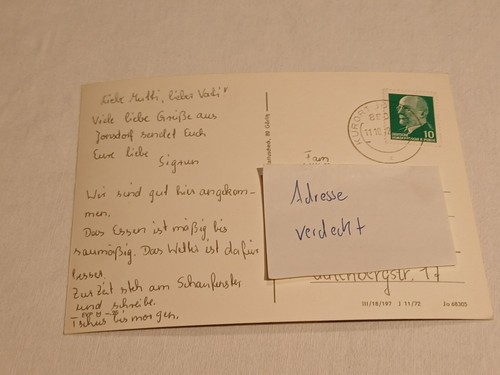 Liebe Mutti, lieber Vati!
Viele liebe Grüße aus
Jonsdorf sendet Euch
Eure liebe
Sigrun
Wir sind gut hier angekom-
men.
Das Essen ist mäßig bis
saumäßig. Das Wetter ist dafür
besser.
Zur Zeit steh am Schaufenster
und schreibe.
Tschüs bis morgen.
KURORT
10
Fam
Adresse
verdeckt
17
III/18/197 J 11/72 Jo 68305